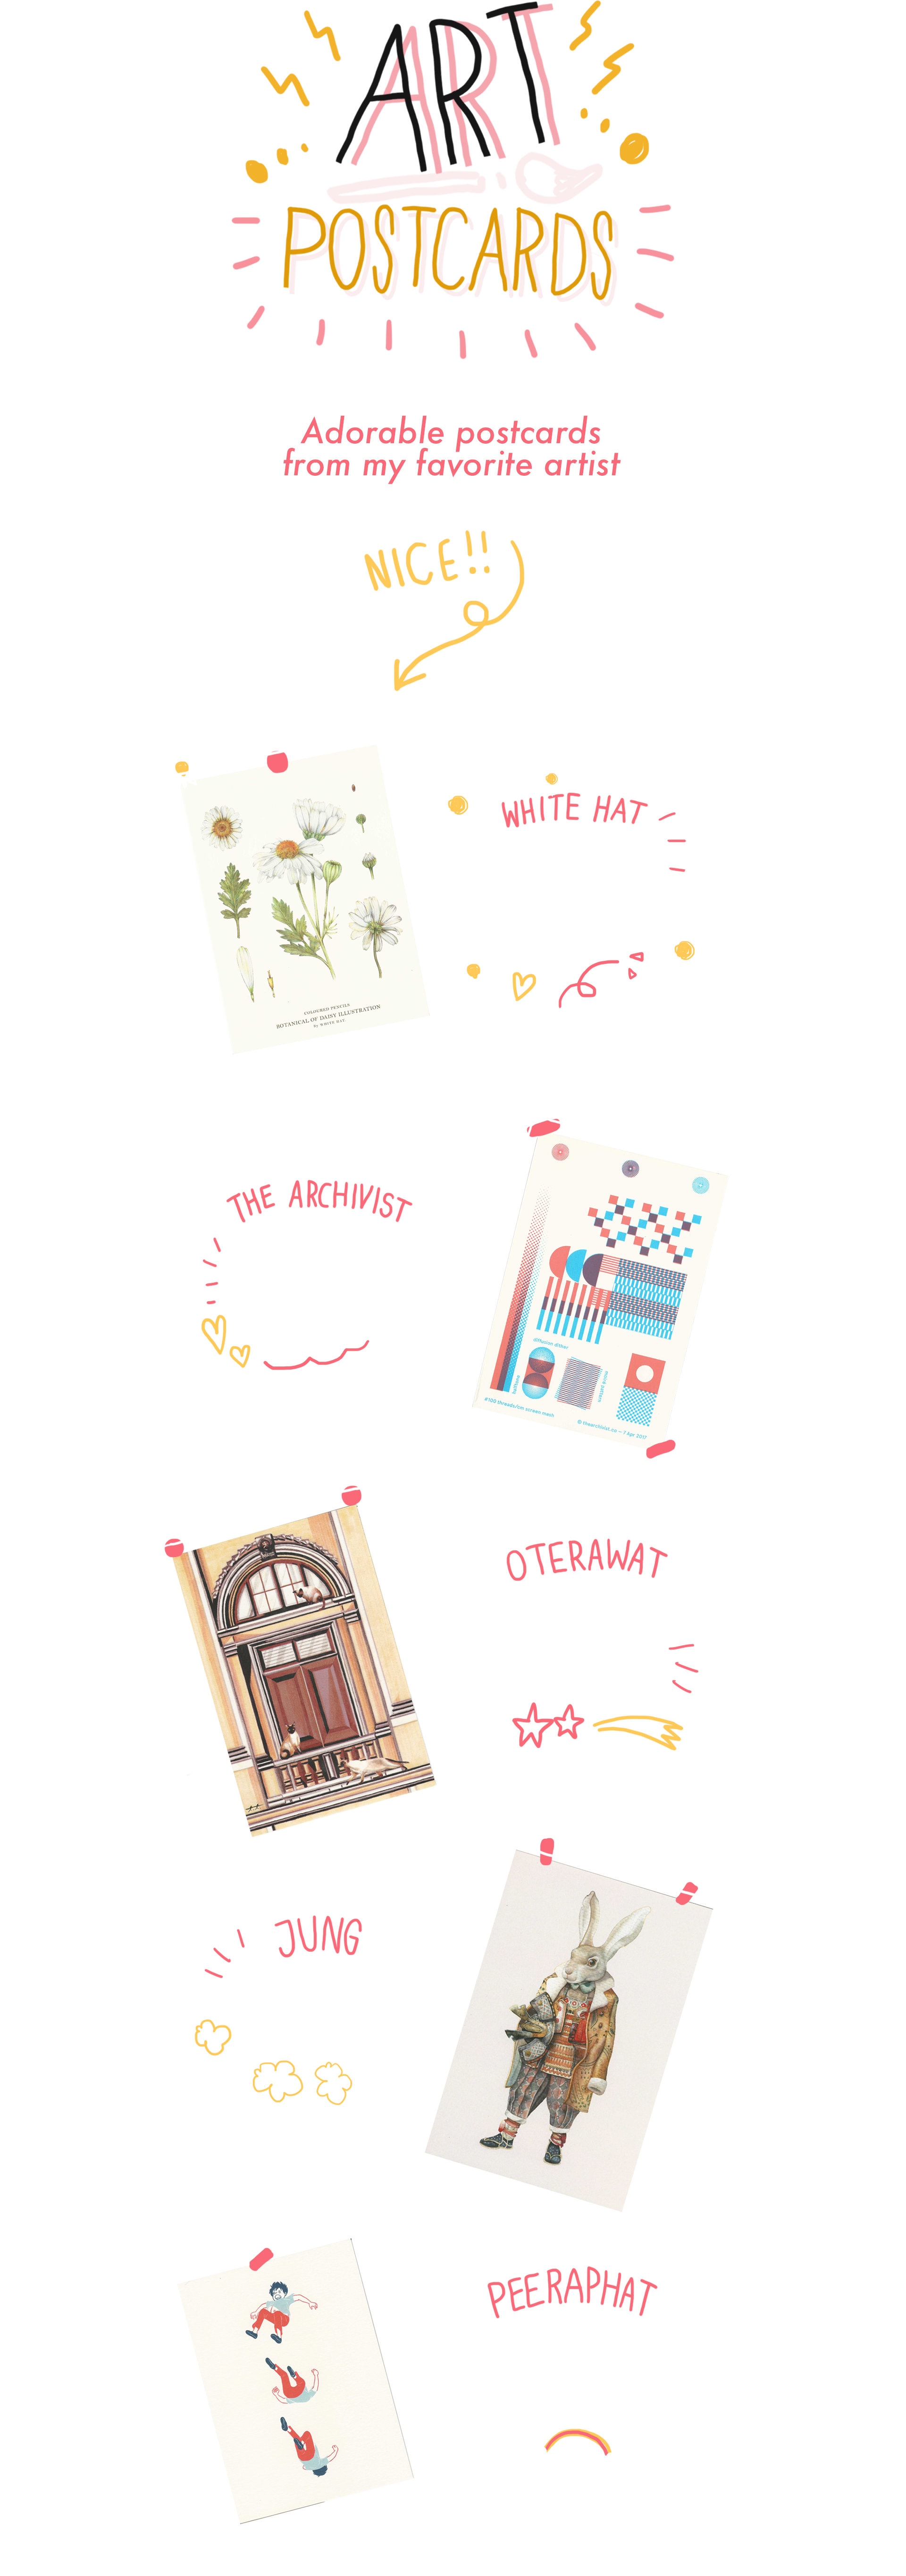 ART
POSTCARDS
Adorable postcards
from my favorite artist
NICE!!
WHITE HAT
COLOURED PENCILS
BOTANICAL OF DAISY ILLUSTRATION
by WHITE HAT
THE ARCHIVIST
diffusion dither
halftone
moiré pattern
#100 threads/cm screen mesh
© thearchivist.co – 7 Apr 2017
OTERAWAT
JUNG
PEERAPHAT